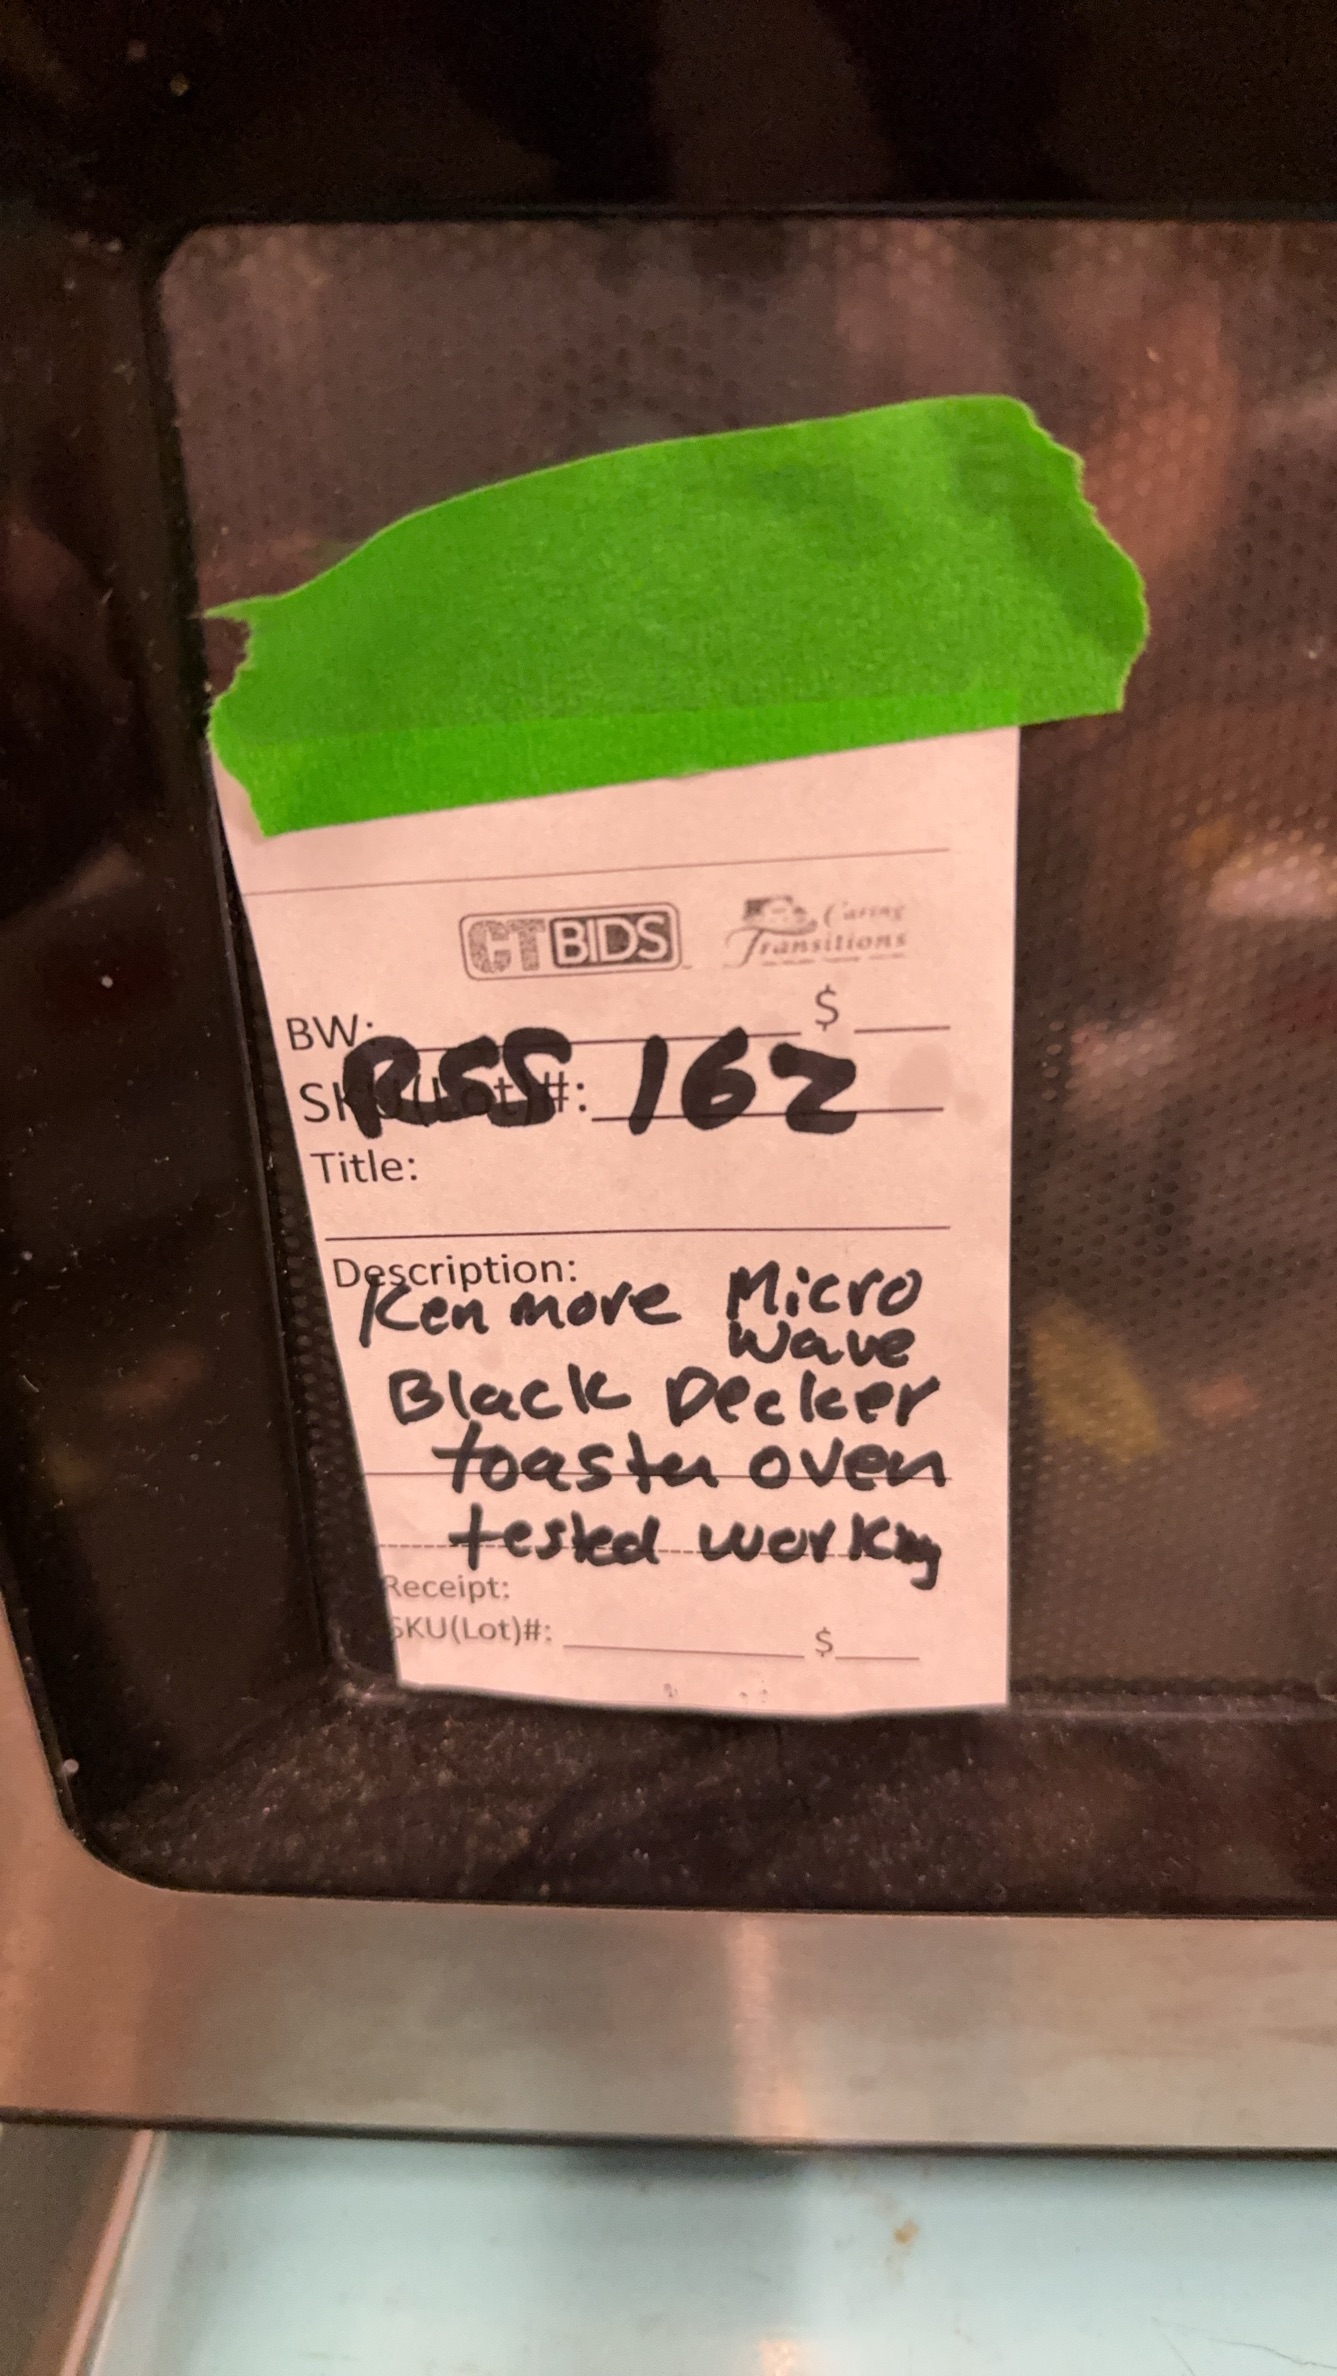 CTBIDS Caring
Transitions
BW: $
RSS 162
SKU(Lot)#:
Title:
Description:
Kenmore Micro
wave
Black Decker
toaster oven
tested working
Receipt:
SKU(Lot)#: $